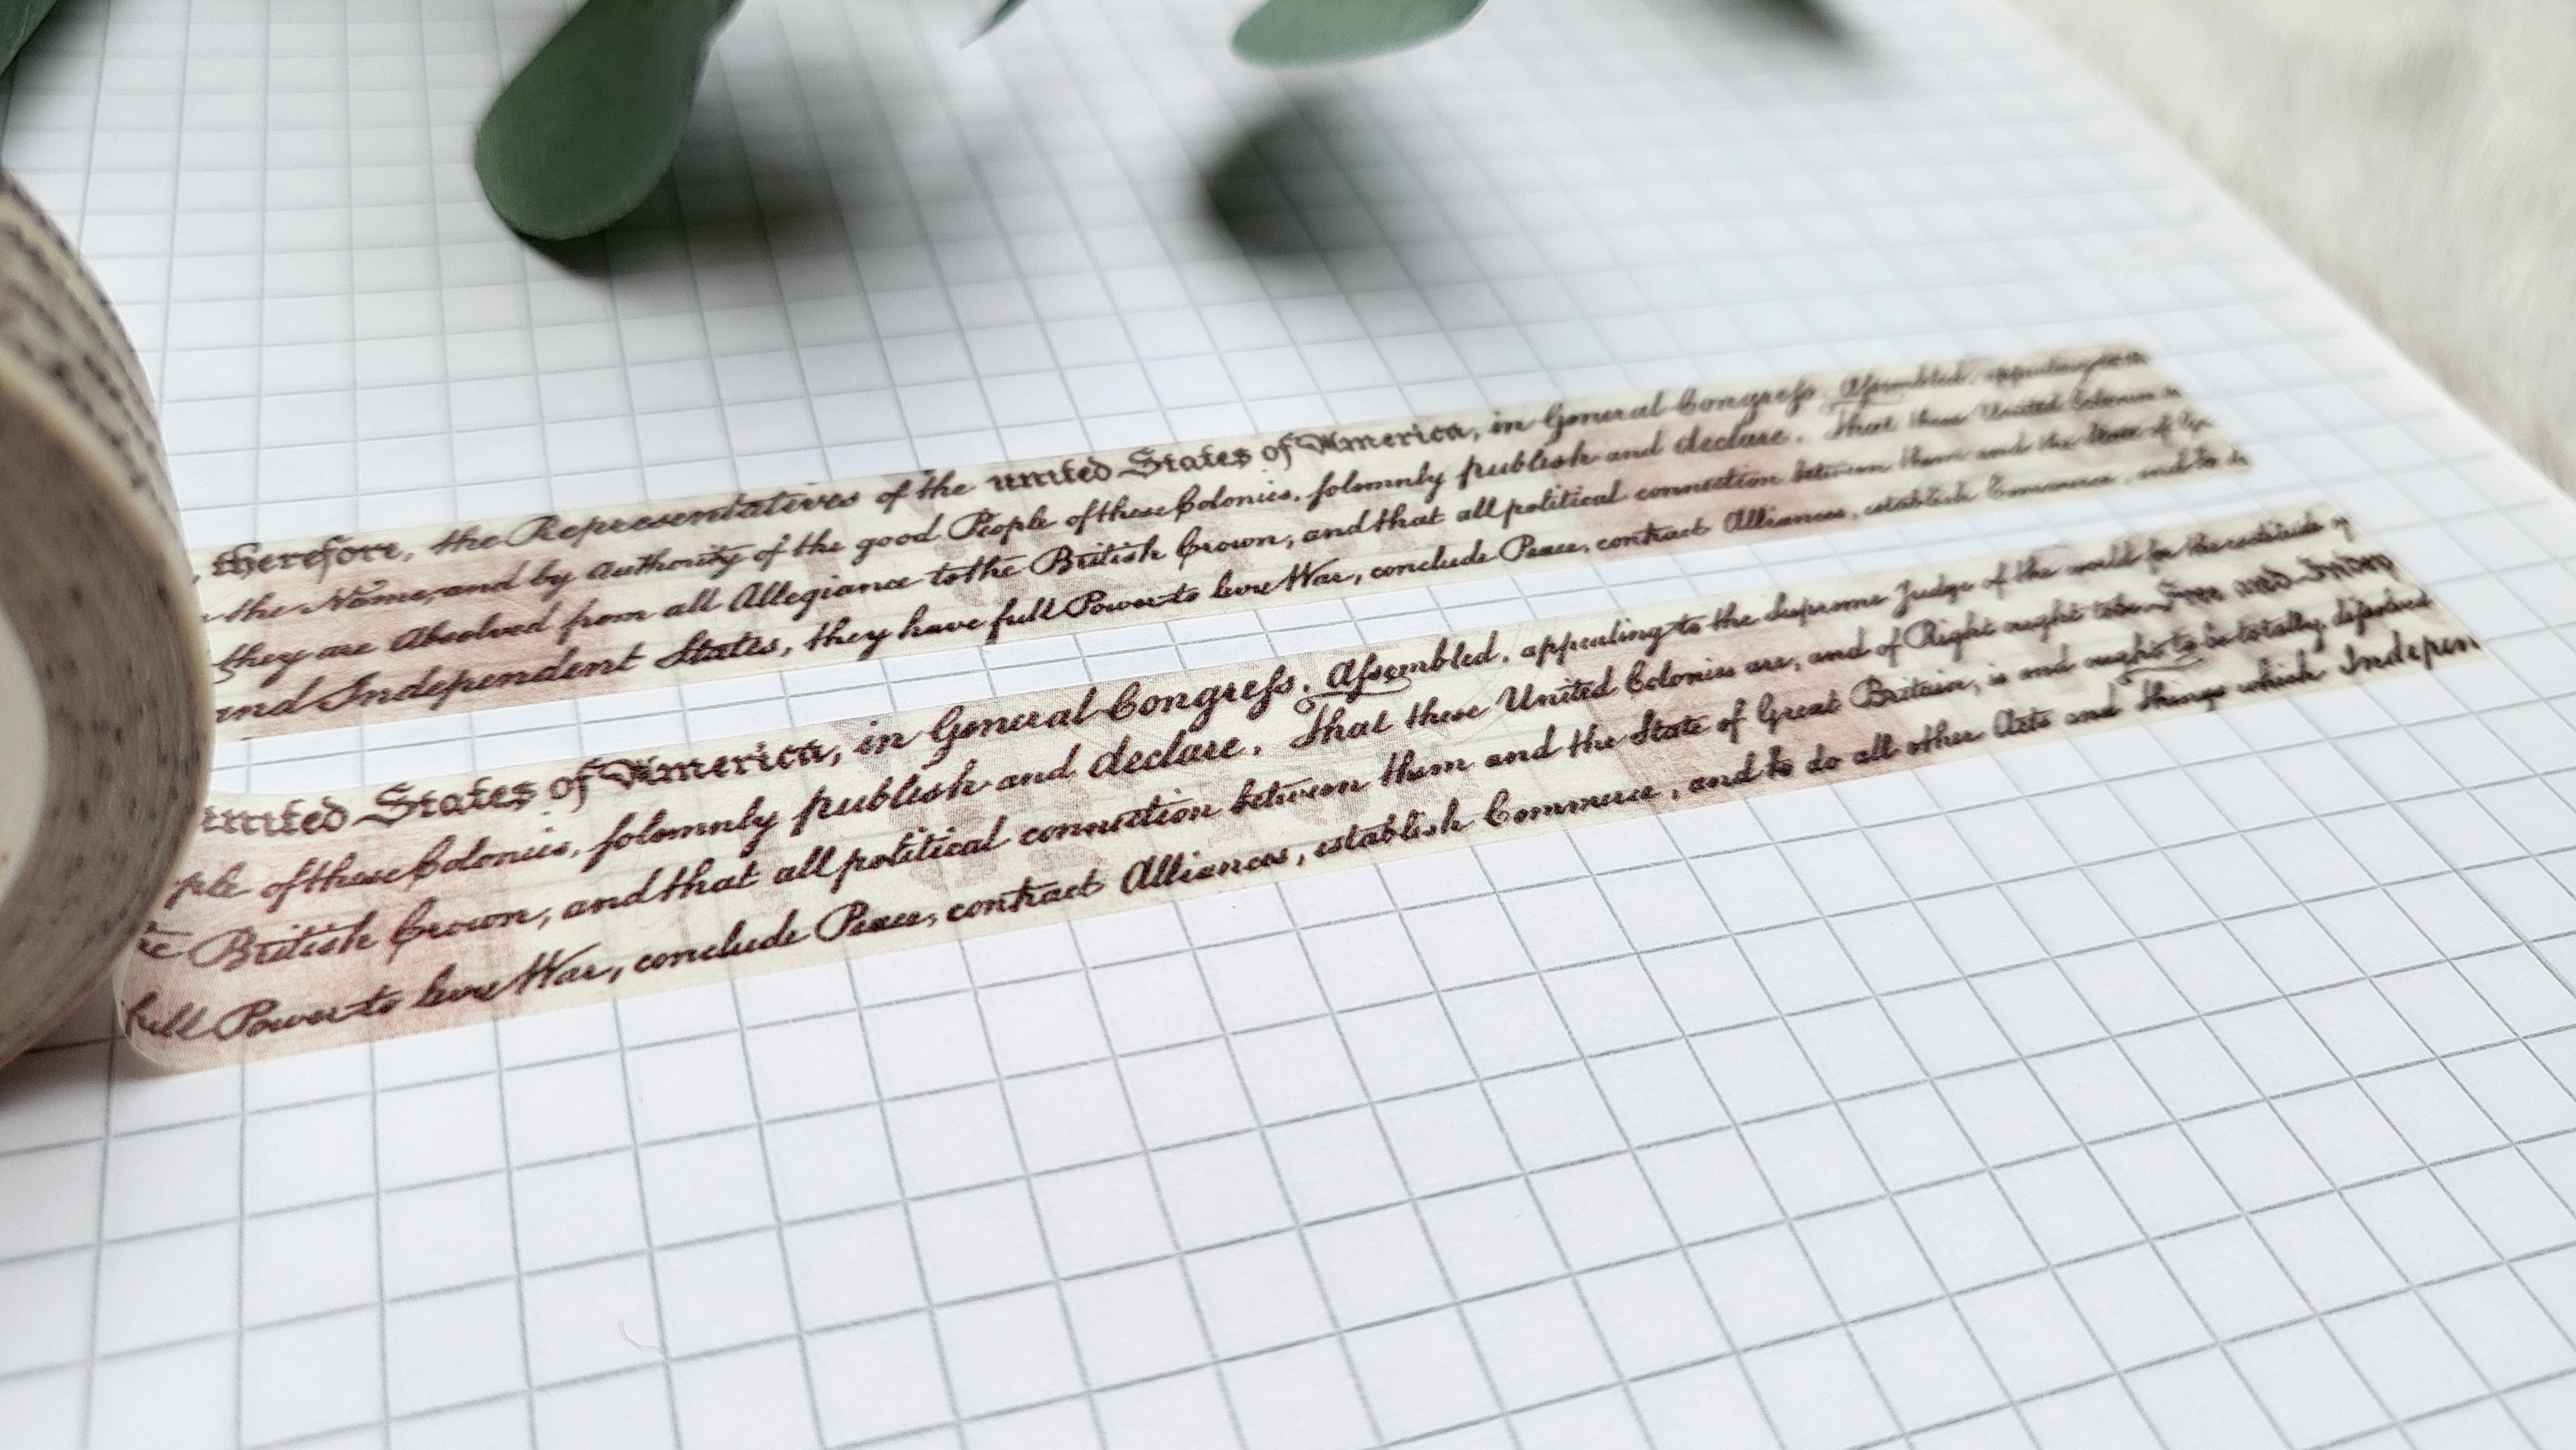 , therefore, the Representatives of the united States of America, in General Congreſs, Aſsembled, appealing
the Name, and by Authority of the good People of these Colonies, ſolemnly publish and declare, That these United Colonies
they are Absolved from all Allegiance to the British Crown, and that all political connection between them and the State of
and Independent States, they have full Power to levy War, conclude Peace, contract Alliances, establish Commerce, and to
united States of America, in General Congreſs, Aſsembled, appealing to the Supreme Judge of the world for the rectitude of
ple of these Colonies, ſolemnly publish and declare, That these United Colonies are, and of Right ought to be Free and Indep
British Crown, and that all political connection between them and the State of Great Britain, is and ought to be totally diſsolved
full Power to levy War, conclude Peace, contract Alliances, establish Commerce, and to do all other Acts and Things which Indepen